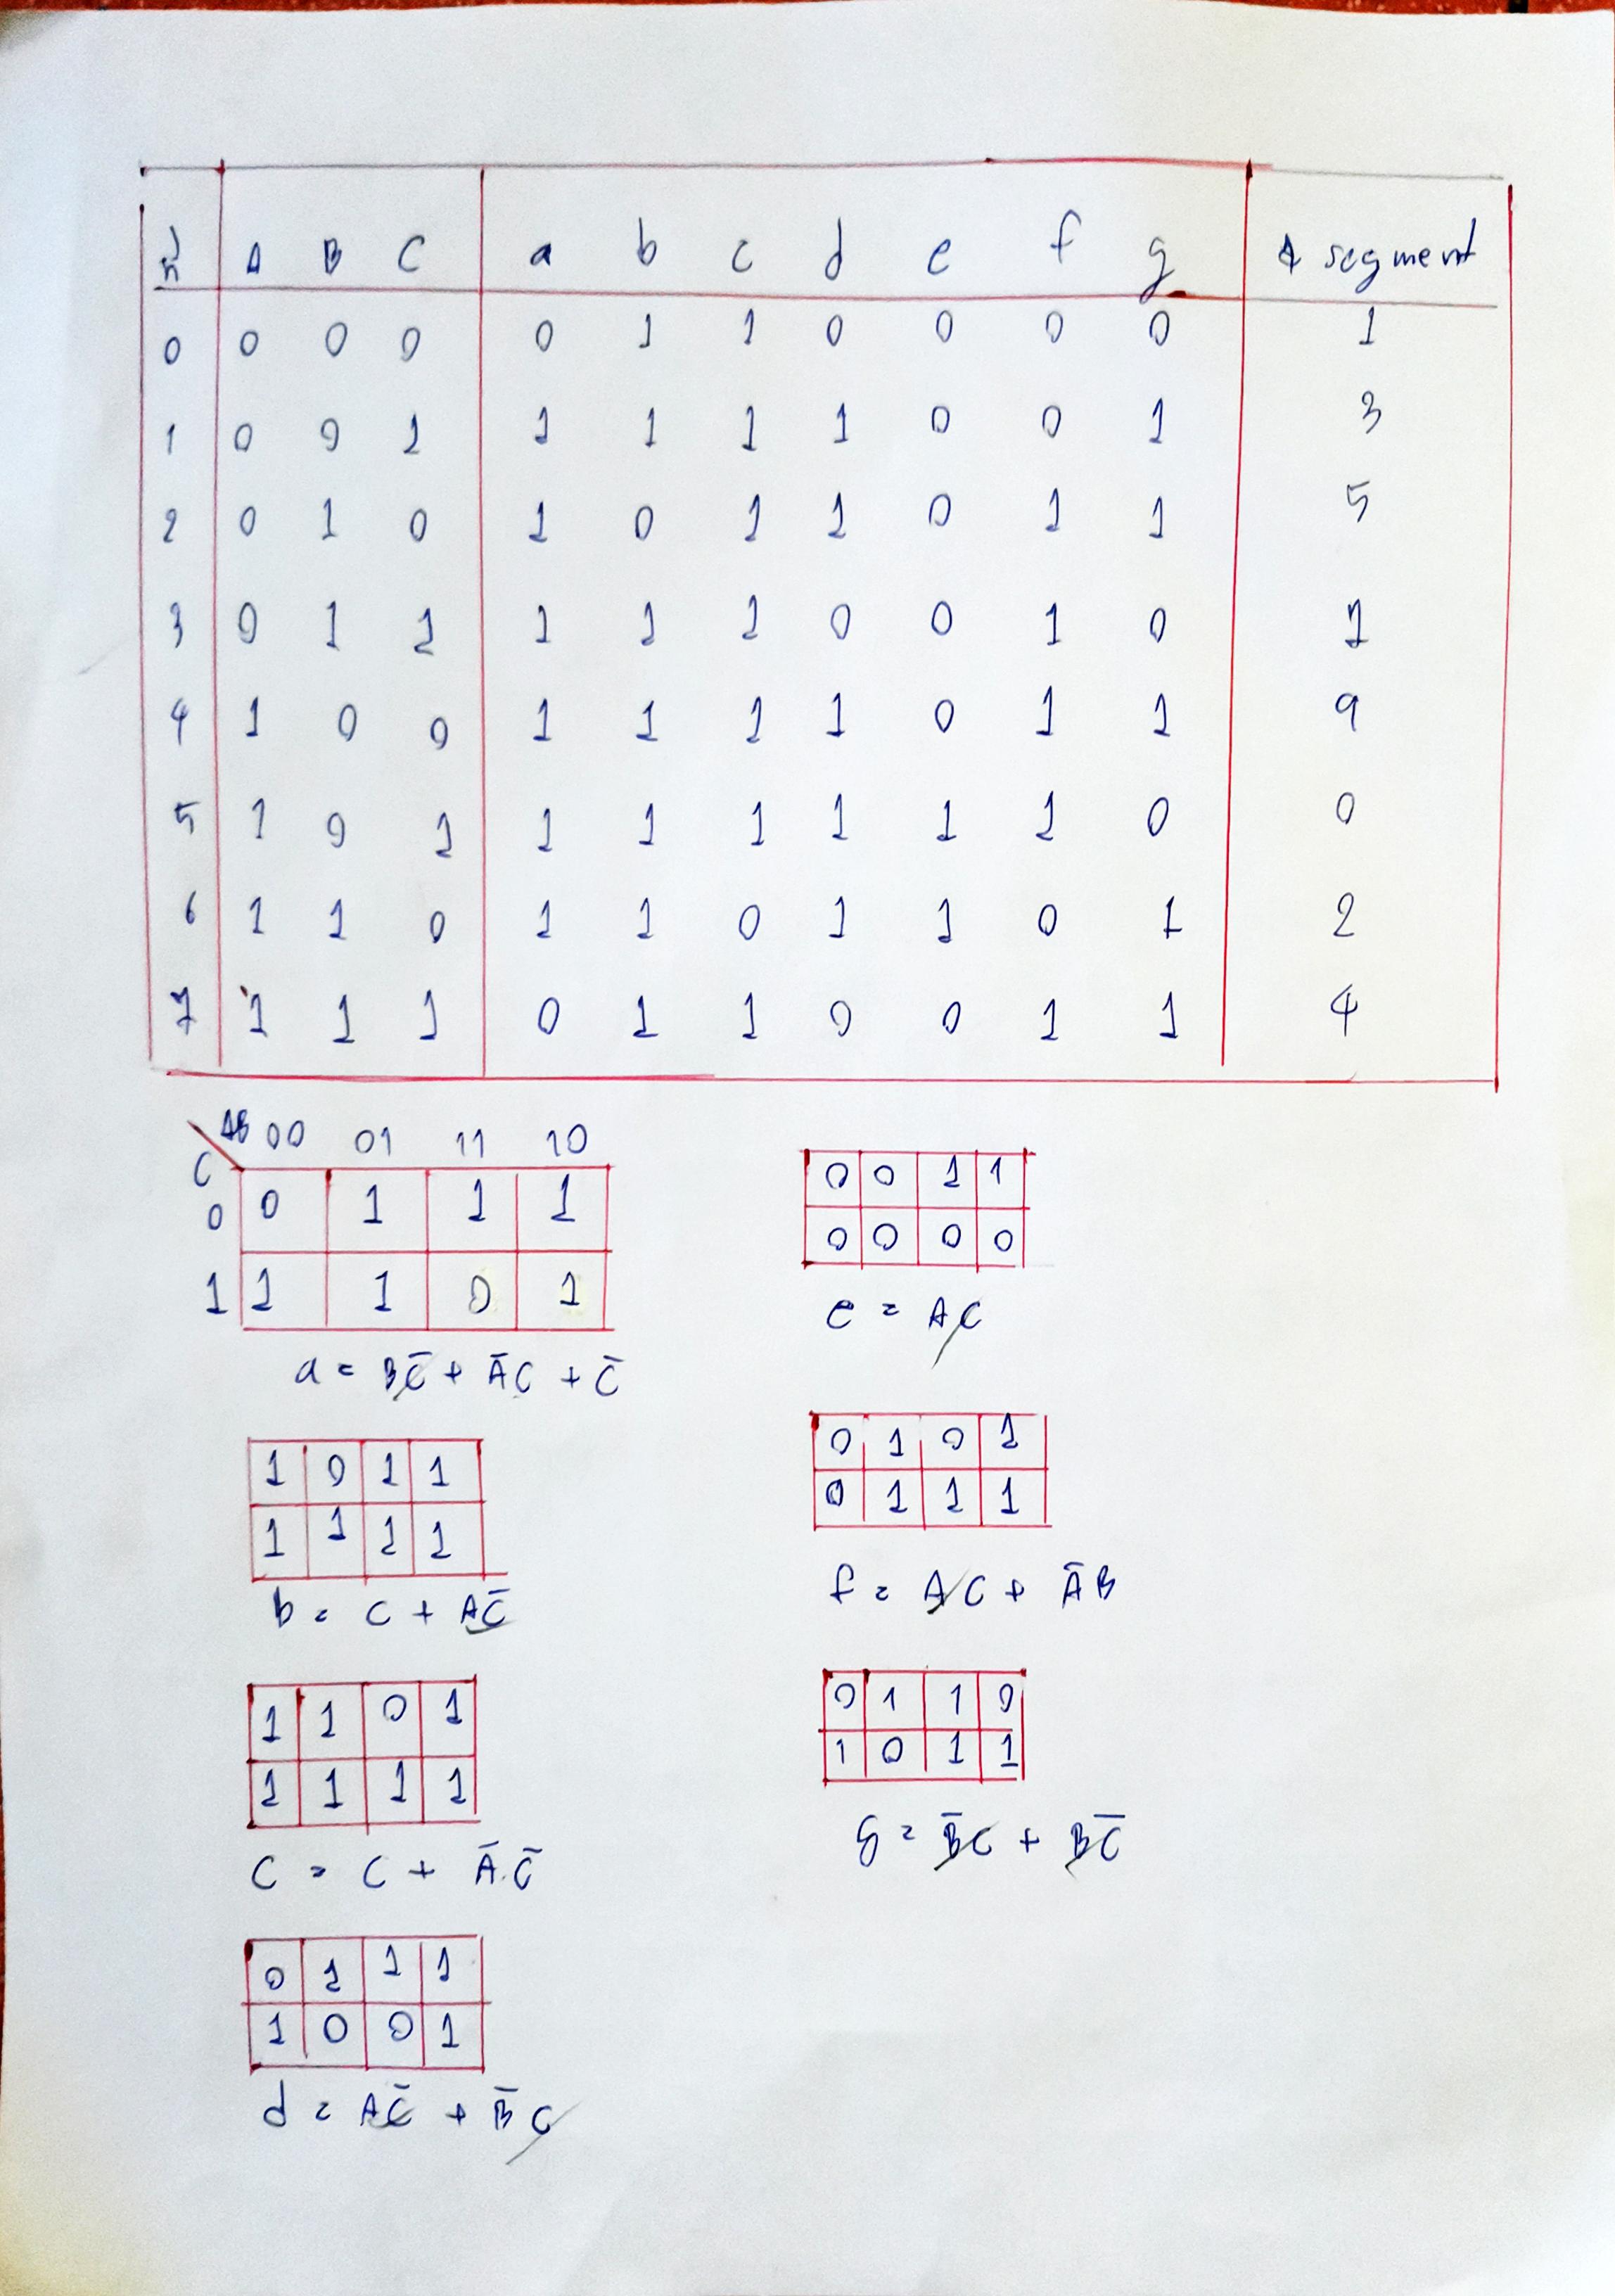 n A B C a b c d e f g # segment
0 0 0 0 0 1 1 0 0 0 0 1
1 0 0 1 1 1 1 1 0 0 1 3
2 0 1 0 1 0 1 1 0 1 1 5
3 0 1 1 1 1 1 0 0 1 0 7
4 1 0 0 1 1 1 1 0 1 1 9
5 1 0 1 1 1 1 1 1 1 0 0
6 1 1 0 1 1 0 1 1 0 1 2
7 1 1 1 0 1 1 0 0 1 1 4
AB 00 01 11 10
C
0 0 1 1 1
1 1 1 0 1
a = BC̅ + A̅C + C̅
1 0 1 1
1 1 1 1
b = C + AC̅
1 1 0 1
1 1 1 1
C = C + A̅.C̅
0 1 1 1
1 0 0 1
d = AC̅ + B̅C
0 0 1 1
0 0 0 0
e = AC
0 1 0 1
0 1 1 1
f = AC + A̅B
0 1 1 0
1 0 1 1
g = B̅C + BC̅